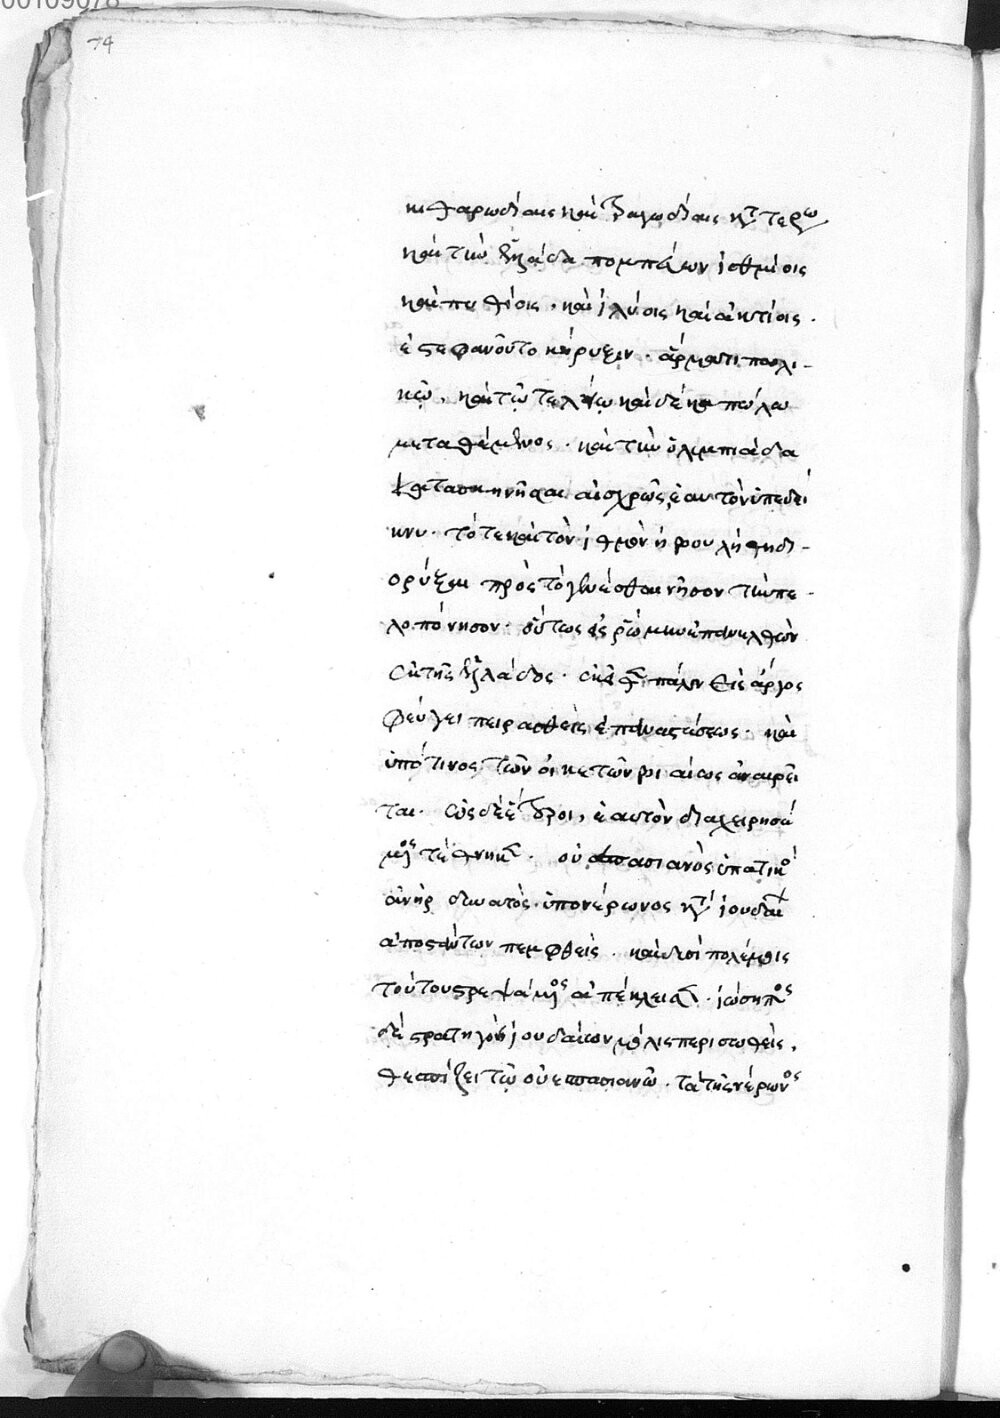 00109078
74
κιθαρωδίαις καὶ τραγωδίαις
καὶ τὴν ἑλλάδα πομπεύων ἰσθμίοις
καὶ πυθίοις · καὶ ἰλύοις καὶ ἀκτίοις ·
ἐστεφανοῦτο κήρυξιν · ἅρματι πωλι-
κῶ, καὶ τῶ τελείω καὶ δέκα πώλω
μεταθέμενος · καὶ τὴν ὀλυμπιάδα
αἰσχρῶς ἑαυτὸν ὑπεδεί
κνυ · τότε καὶ τὸν ἰσθμὸν ἠβουλήθη δι-
ορύξαι πρὸς τὸ γενέσθαι νῆσον τὴν πε-
λοπόννησον · οὕτως εἰς ῥώμην ἐπανελθὼν
ἐκ τῆς ἑλλάδος · πάλιν εἰς ἄργος
φεύγει πειραθεὶς ἐπαναστάσεως · καὶ
ὑπό τινος τῶν οἰκετῶν βιαίως ἀναιρεῖ
ται · ὡς δὲ ἕτεροι, ἑαυτὸν διαχειρησά
μενος τέθνηκε · οὐεσπασιανὸς ὑπατικὸς
ἀνὴρ δυνατὸς · ὑπὸ νέρωνος κατὰ ἰουδαίων
ἀποστάντων πεμφθεὶς · καὶ δυσὶ πολέμοις
τούτους τρεψάμενος ἀπέκλεισε · ἰώσηπος
δὲ στρατηγὸς ἰουδαίων μόλις περισωθεὶς,
θεσπίζει τῶ οὐεσπασιανῶ · τὰ τῆς νέρωνος